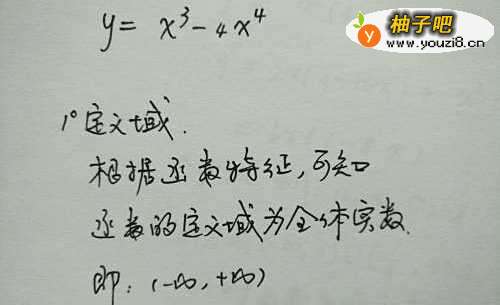 y = x³-4x⁴
柚子吧
www.youzi8.cn
1°定义域.
根据函数特征,可知
函数的定义域为全体实数.
即:(-∞,+∞)